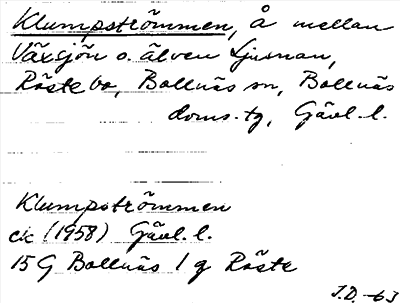 Klumpströmmen, å mellan
Växsjön o. älven Ljusnan,
Rästebo, Bollnäs sn, Bollnäs
doms.tg, Gävl. l.
Klumpströmmen
ek (1958) Gävl. l.
15 G Bollnäs 1 g Räste
J.D. -63